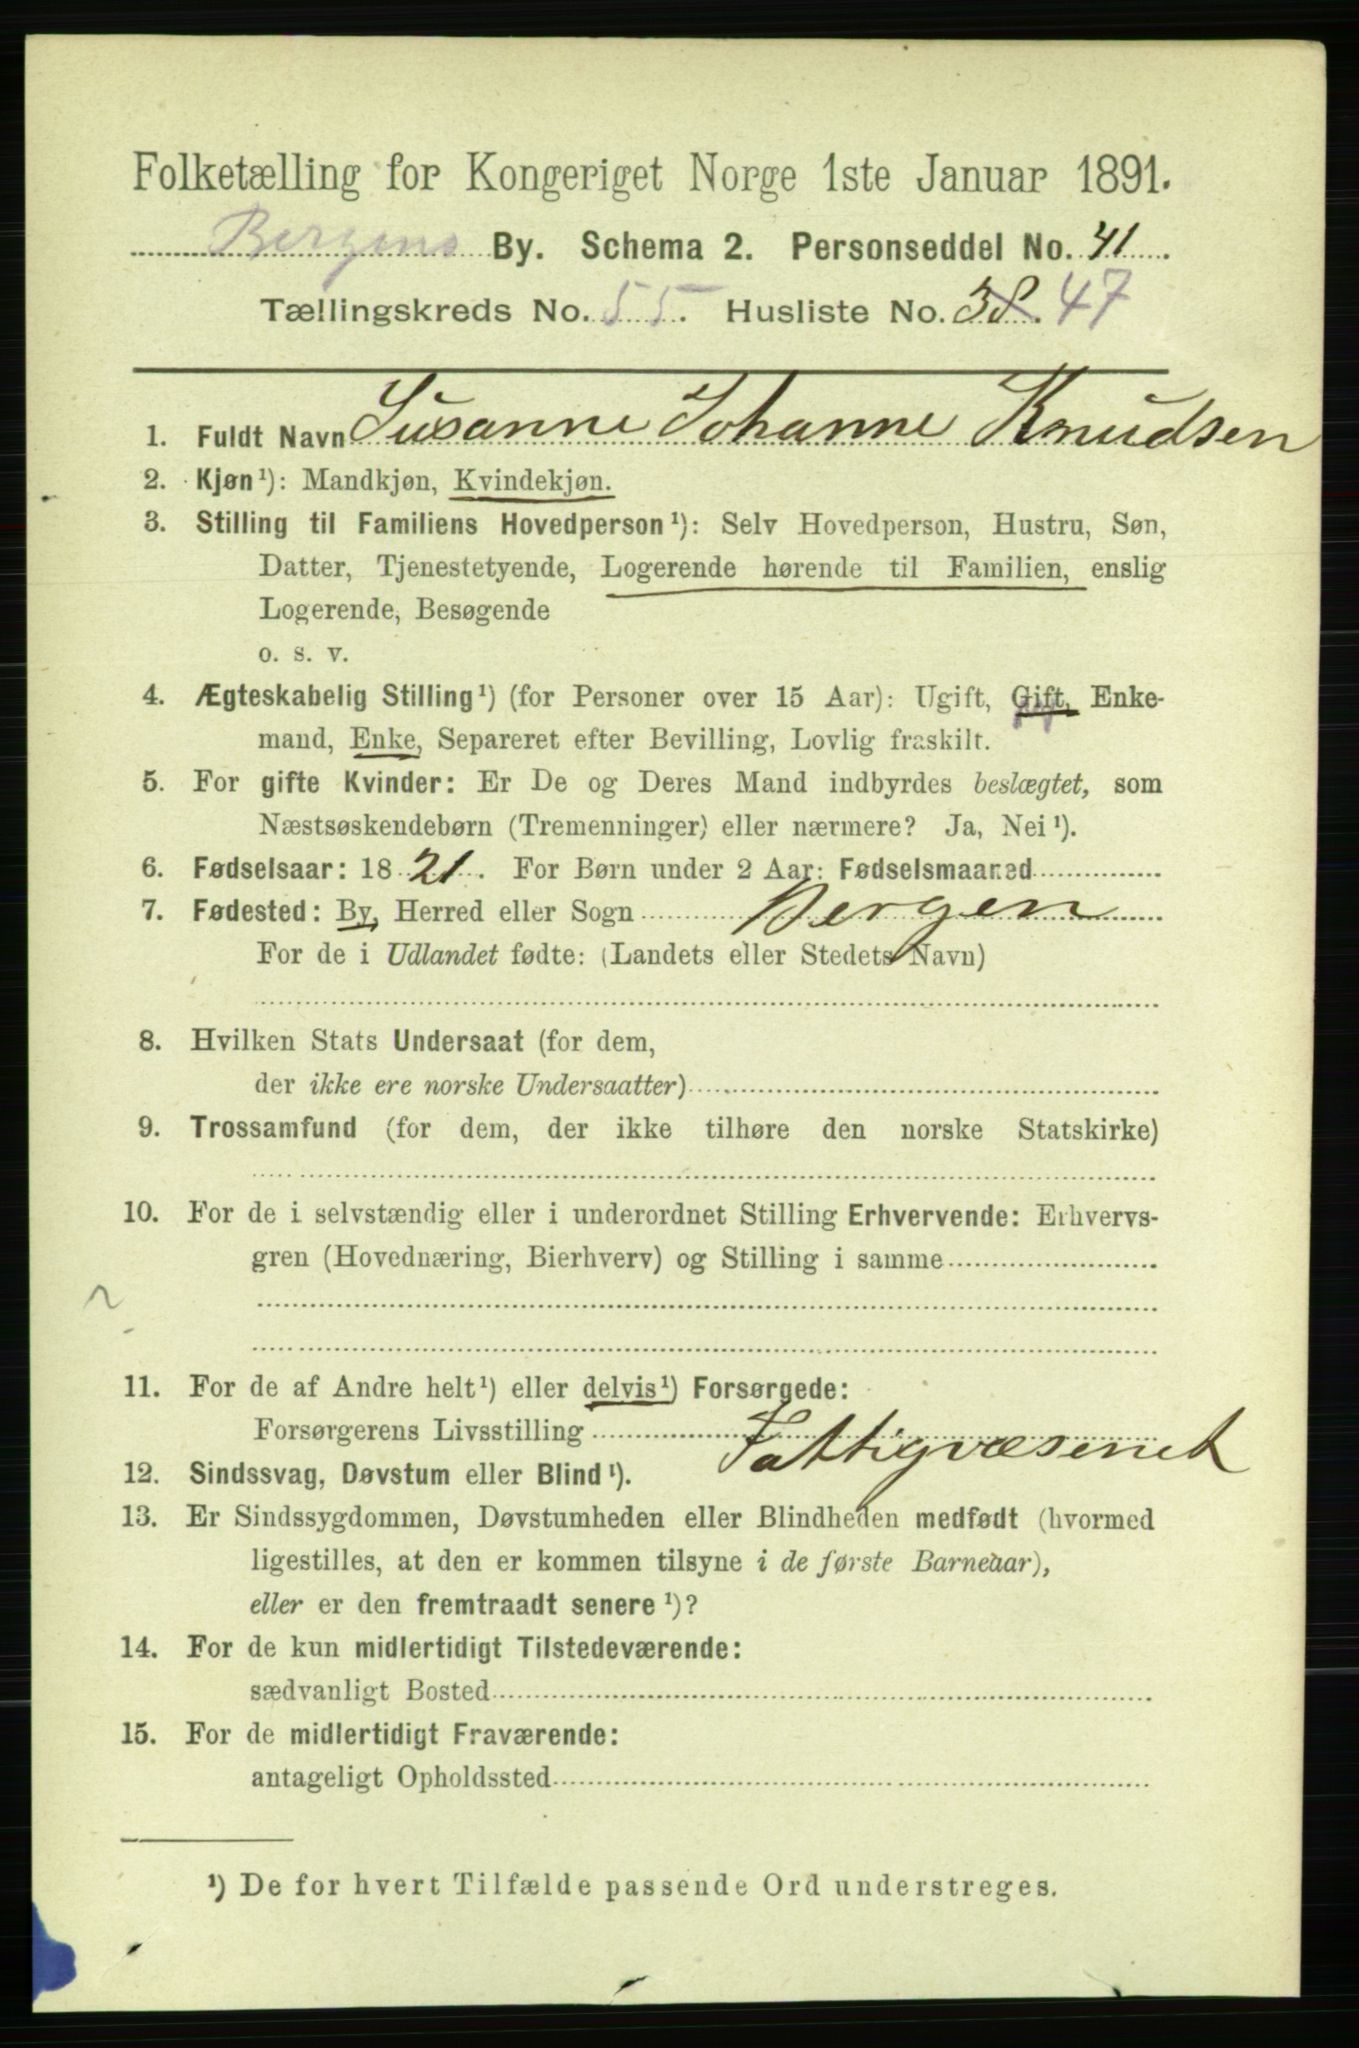 Folketælling for Kongeriget Norge 1ste Januar 1891.
Bergens By. Schema 2. Personseddel No. 41.
Tællingskreds No. 55. Husliste No. 38. 47
1. Fuldt Navn Susanne Johanne Knudsen
2. Kjøn¹): Mandkjøn, Kvindekjøn.
3. Stilling til Familiens Hovedperson¹): Selv Hovedperson, Hustru, Søn,
Datter, Tjenestetyende, Logerende hørende til Familien, enslig
Logerende, Besøgende
o. s. v.
4. Ægteskabelig Stilling¹) (for Personer over 15 Aar): Ugift, Gift, Enke-
mand, Enke, Separeret efter Bevilling, Lovlig fraskilt.
5. For gifte Kvinder: Er De og Deres Mand indbyrdes beslægtet, som
Næstsøskendebørn (Tremenninger) eller nærmere? Ja, Nei¹).
6. Fødselsaar: 1821. For Børn under 2 Aar: Fødselsmaaned
7. Fødested: By, Herred eller Sogn Bergen
For de i Udlandet fødte: (Landets eller Stedets Navn)
8. Hvilken Stats Undersaat (for dem,
der ikke ere norske Undersaatter)
9. Trossamfund (for dem, der ikke tilhøre den norske Statskirke)
10. For de i selvstændig eller i underordnet Stilling Erhvervende: Erhvervs-
gren (Hovednæring, Bierhverv) og Stilling i samme
11. For de af Andre helt¹) eller delvis¹) Forsørgede:
Forsørgerens Livsstilling Fattigvæsenet
12. Sindssvag, Døvstum eller Blind¹).
13. Er Sindssygdommen, Døvstumheden eller Blindheden medfødt (hvormed
ligestilles, at den er kommen tilsyne i de første Barneaar),
eller er den fremtraadt senere¹)?
14. For de kun midlertidigt Tilstedeværende:
sædvanligt Bosted
15. For de midlertidigt Fraværende:
antageligt Opholdssted
¹) De for hvert Tilfælde passende Ord understreges.